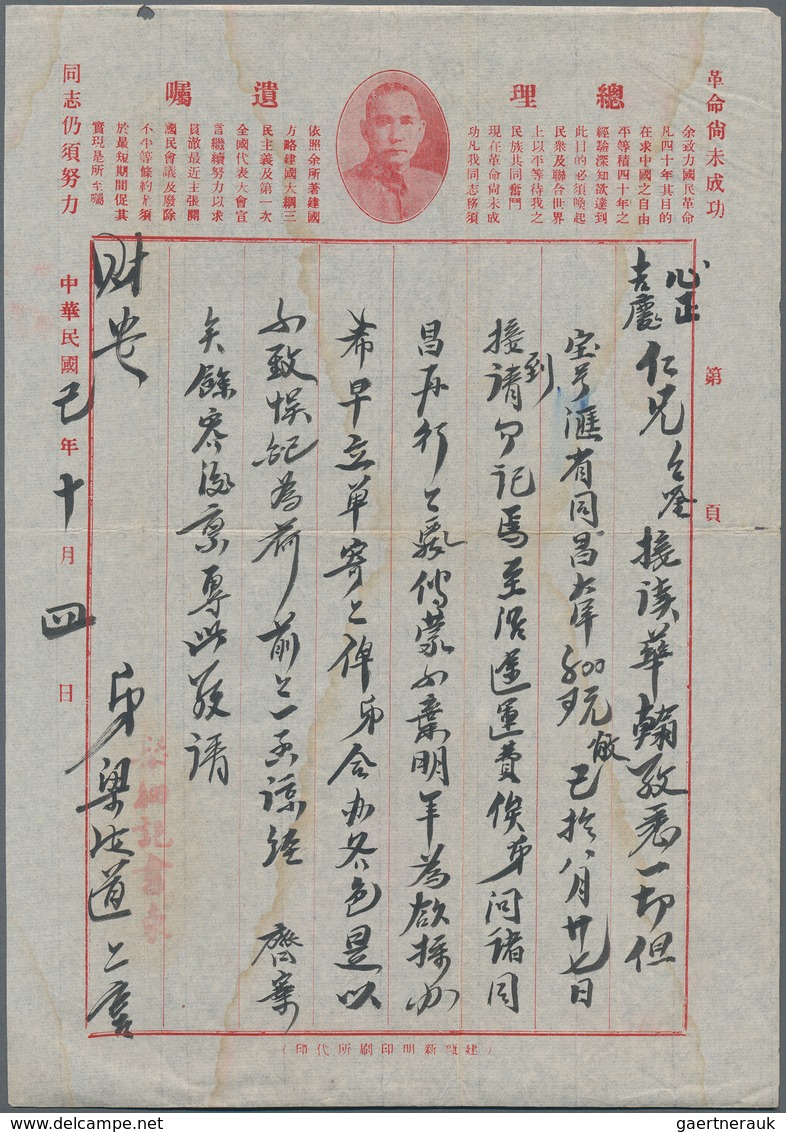 革命尚未成功
總理
遺囑
余致力國民革命
凡四十年其目的
在求中國之自由
平等積四十年之
經驗深知欲達到
此目的必須喚起
民衆及聯合世界
上以平等待我之
民族共同奮鬥
現在革命尚未成
功凡我同志務須
依照余所著建國
方略建國大綱三
民主義及第一次
全國代表大會宣
言繼續努力以求
貫澈最近主張開
國民會議及廢除
不平等條約尤須
於最短期間促其
實現是所至囑
同志仍須努力
第 頁
心正
吉慶 仁兄台鑒 接讀華翰敬悉一切但
宝号滙省同昌大洋 元敝已於八月廿七日
接到請勿記焉至滬運費俟弟問諸同
昌再行 蒙不棄明年為欲採办
希早立单寄上俾弟合办各色是以
不致悞記為荷前上一函諒經 齊案
矣餘容後禀專此敬請
財安
弟梁 道上言
中華民國己年十月四日
(建甌新明印刷所代印)
gaertnerauk
www.delcampe.net